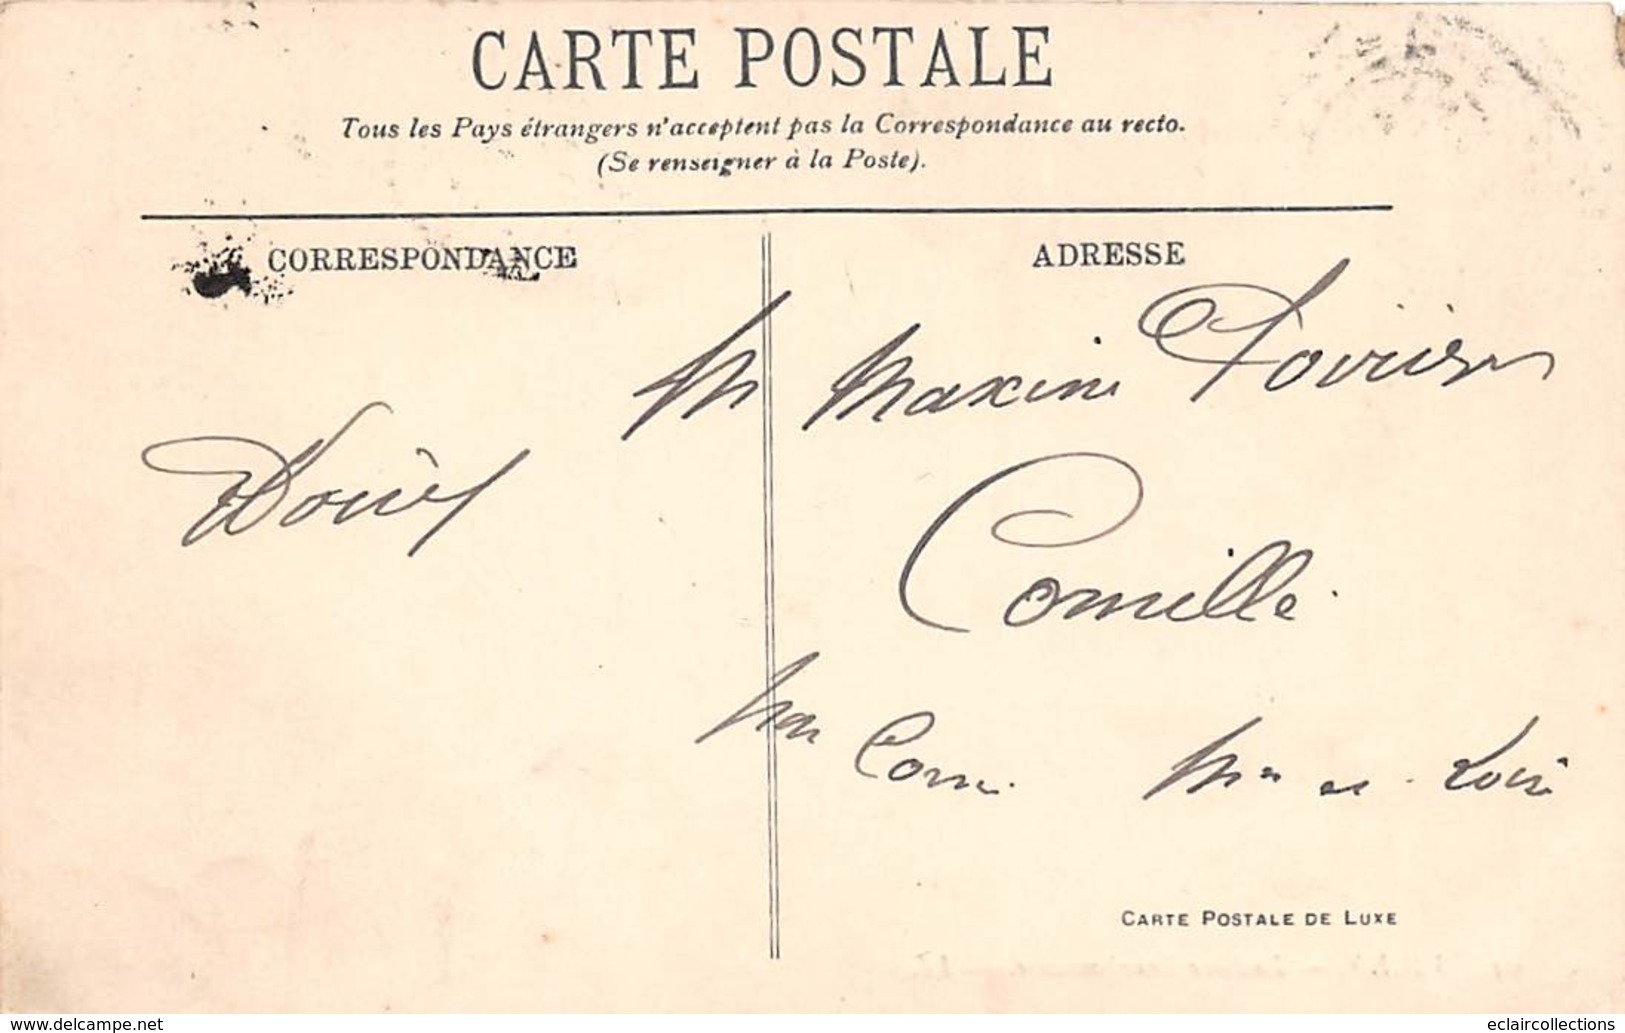 CARTE POSTALE
Tous les Pays étrangers n'acceptent pas la Correspondance au recto.
(Se renseigner à la Poste).
CORRESPONDANCE
ADRESSE
M Maxime
Cornillé
par Corné. Mne et Loire
CARTE POSTALE DE LUXE
www.delcampe.net
eclaircollections